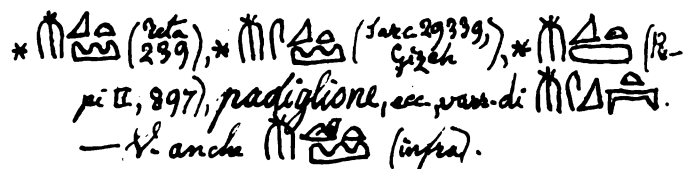 * (Teta 239), * (Sarc 29339, Gizeh), * (Pe-
pi II, 897), padiglione, ecc., varr. di .
— V. anche (infra).